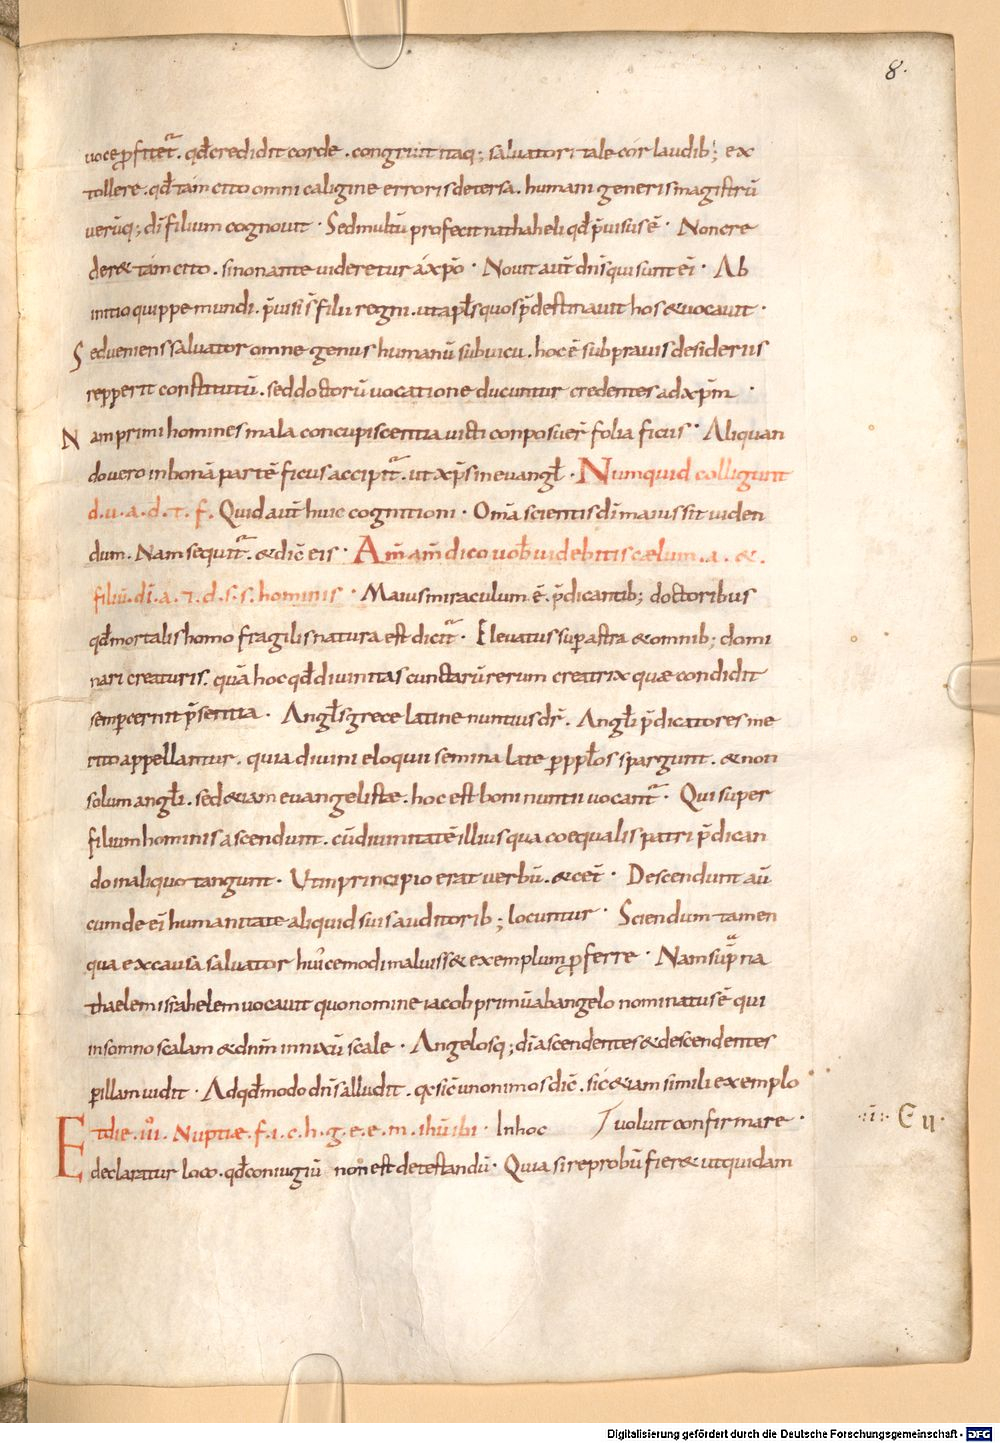 8.
uoce ꝓfitet᷑. qđ credidit corde. congruit itaq; saluatori tale cor laudib; ex
tollere. qđ tam cito omni caligine erroris detersa. humani generis magistrū
uerūq; dī filium cognouit · Sed multū profecit nathaheli qđ p̄uisus ē · Non cre
der& tam cito. si non ante uideretur a xp̄o · Nouit aut̄ dn̄s qui sunt ei · Ab
initio quippe mundi. p̄uisi s̄ filii regni. ut apl̄s quos p̄destinauit hos & uocauit ·
Sed ueniens saluator omne genus humanū subuicu. hoc ē sub prauis desideriis
repperit constitutū. sed doctorū uocatione ducuntur credentes ad xp̄m ·
Nam primi homines mala concupiscentia uicti conposuer̄ folia ficus · Aliquan
do uero in bonā partē ficus accipit᷑. ut xp̄s in euangl̄ · Numquid colligunt
d. u. a. d. t. f. Quid aut̄ huic cognitioni · Om̄a scientis dī maius sit uiden
dum. Nam sequit᷑. & dic̄ eis · Am̄ am̄ dico uob̄ uidebitis cælum. a. &.
filiū. dī. a. 7. d. s. s. hominis · Maius miraculum ē. p̄dicantib; doctoribus
qđ mortalis homo fragilis natura est dicit᷑ · Eleuatus suꝑ astra & omnib; domi
nari creaturis. quā hoc qđ diuinitas cunctarū rerum creatrix quæ condidit
semꝑ cernit p̄sentia · Angl̄s grece latine nuntius dr̄. Angl̄i p̄dicatores me
rito appellantur. quia diuini eloquii semina late ꝑ ppl̄os spargunt. & non
solum angl̄i. sed &iam euangelistæ. hoc est boni nuntii uocant᷑ · Qui super
filium hominis ascendunt. cū diuinitatē illius qua coequalis patri p̄dican
do in aliquo tangunt · Ut in principio erat uerbū. & cet̄ · Descendunt aū
cum de ei humanitate aliquid suis auditorib; locuntur · Sciendum tamen
qua ex causa saluator huicemodi maluiss& exemplum ꝓferre · Nam sup̄ na
thaelem israhelem uocauit quo nomine iacob primū ab angelo nominatus ē qui
in somno scalam & dn̄m innixū scale · Angelosq; dī ascendentes & descendentes
ꝑ illam uidit · Ad qđ modo dn̄s alludit. sic &iam simili exemplo
uoluit confirmare ·
Et die. iii. Nuptiæ. f. i. c. h. g. e. e. m. ihū ibi · In hoc
·:i:· Eu.
declaratur loco. qđ coniugiū non est detestandū · Quia si reprobū fier& utquidam
Digitalisierung gefördert durch die Deutsche Forschungsgemeinschaft - DFG